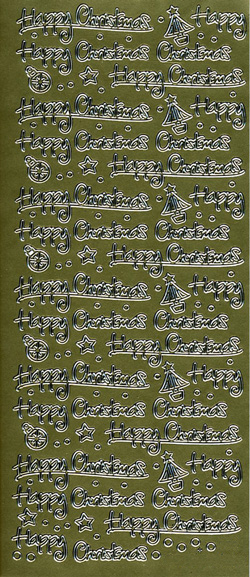 Happy Christmas Happy
Happy Christmas Christmas
Happy Christmas
Happy Christmas Happy
Happy Christmas Christmas
Happy Christmas
Happy Christmas Happy
Happy Christmas Christmas
Happy Christmas
Happy Christmas Happy
Happy Christmas Christmas
Happy Christmas
Happy Christmas Happy
Happy Christmas Christmas
Happy Christmas
Happy Christmas Happy
Happy Christmas Christmas
Happy Christmas
Happy Christmas